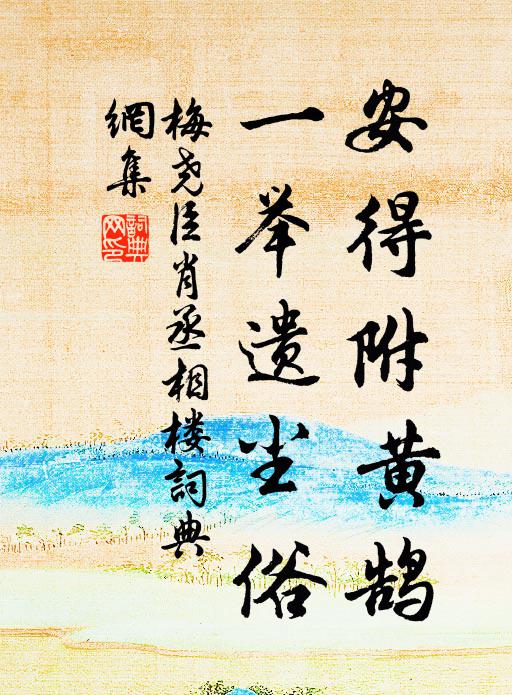 安得附黄鹄
一举遗尘俗
梅尧臣肖丞相楼詞典
網集
詞典網印